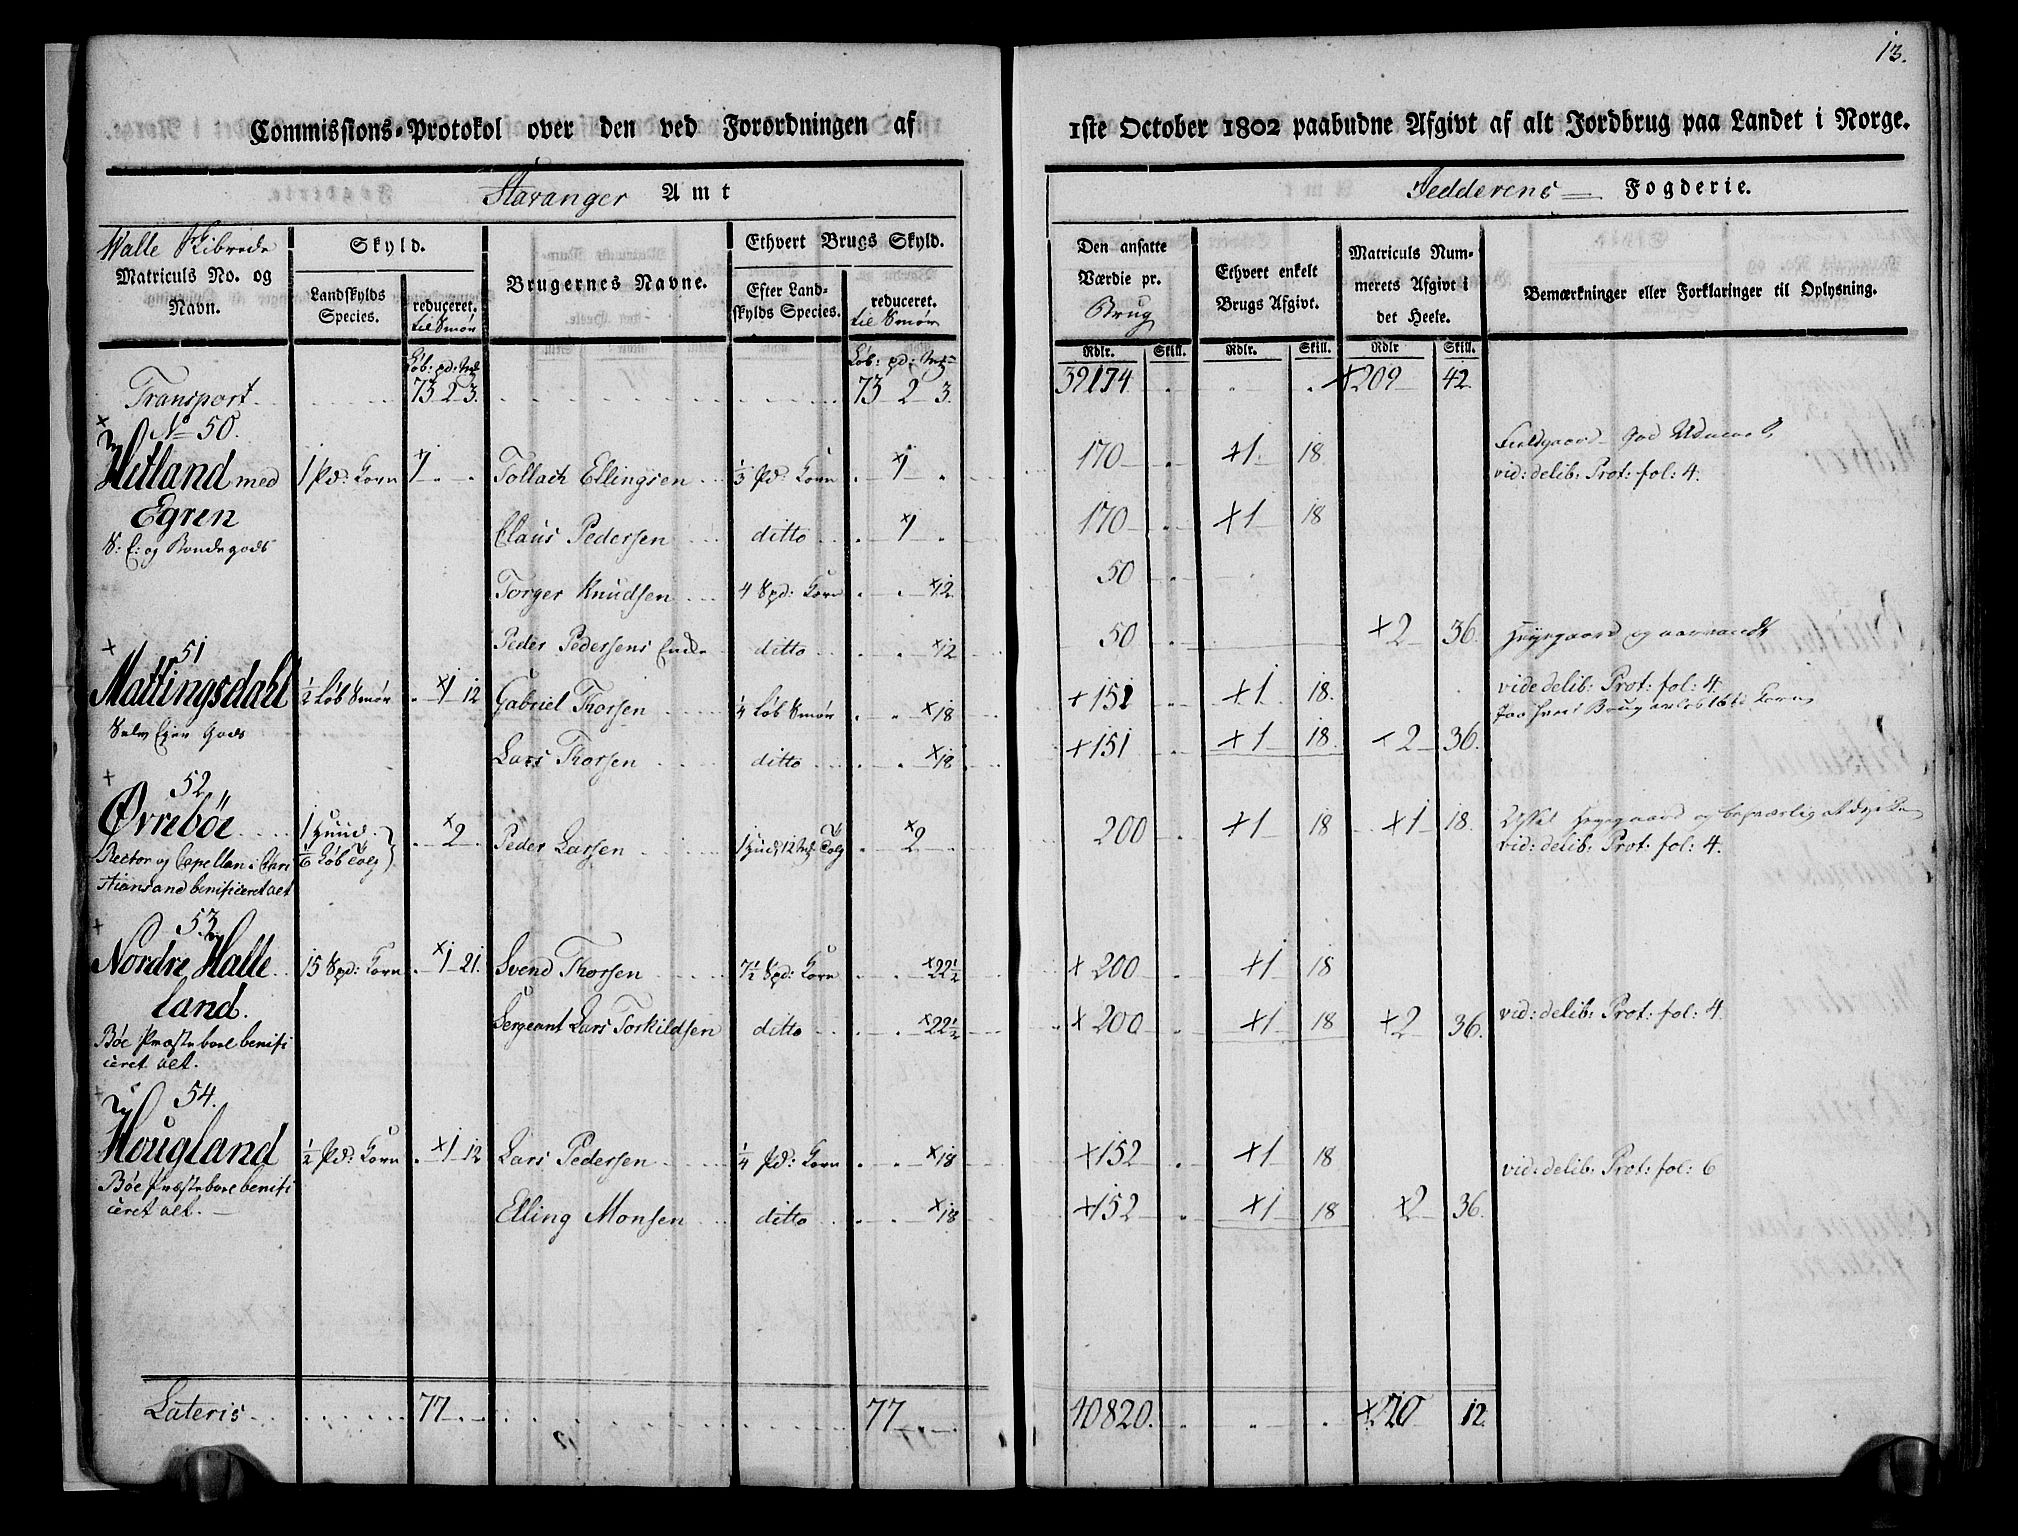 13.
Commissions-Protokol over den ved Forordningen af 1ste October 1802 paabudne Afgivt af alt Jordbrug paa Landet i Norge.
Stavanger Amt
Jedderens Fogderie.
Walle Skibrede
Matriculs No. og Navn.
Skyld.
Landskylds Species.
reduceret. til Smør
Brugernes Navne.
Ethvert Brugs Skyld.
Efter Landskylds Species.
reduceret. til Smør
Den ansatte Værdie pr. Brug
Ethvert enkelt Brugs Afgivt.
Matriculs Nummerets Afgivt i det Heele.
Bemærkninger eller Forklaringer til Oplysning.
Løb: pd: Mk Løb: pd: Mk Rdlr. Skill. Rdlr. Skill. Rdlr Skill.
Transport 73 2 3. 73 2 3. 39174 +209 42
+ No 50.
Hetland med 1 Pd: Korn +1 Tollach Ellingsen 1/3 Pd: Korn +1 170 +1 18
god
vid: delib: Prot: fol: 4.
Egren
S: E: og Bondegods
Claus Pedersen ditto +1 170 +1 18
Torger Knudsen 4 Spd: Korn +12 50
Peder Pedersens Enke ditto +12 50 +2 36.
+ 51
Mattingsdahl 1/2 Løb Smør +1 12 Gabriel Thorsen 1/4 Løb Smør +18 +151 +1 18.
vide delib: Prot: fol: 4.
Selv Eyer Gods
Lars Thorsen ditto +18 +151 +1 18. +2 36.
+ 52.
Øvrebøe 1 Huud 1/6 Løb Talg +2 Peder Larsen 1 Hud, 12 Mk Talg +2 200 +1 18 +1 18.
og besværlig at dyrke
vid: delib: Prot: fol: 4.
Rector og Capellan i Chri
stiansand benificeret alt
+ 53.
Nordre Halle
land.
15 Spd: Korn +1 21. Svend Thorsen 7 1/2 Spd: Korn +22 1/2 +200 +1 18
Sergeant Lars Torkildsen ditto +22 1/2 +200 +1 18 +2 36.
vid: delib: Prot: fol: 4.
Bøe Præstebord benifi
ceret alt.
+ 54.
Hougland 1/2 Pd: Korn +1 12 Lars Pedersen 1/4 Pd: Korn +18 +152 +1 18
vid: delib: Prot: fol: 6
Bøe Præstebord benifi
ceret alt.
Elling Monsen ditto +18 +152 +1 18 +2 36.
Lateris 77 77 40820. +220 12